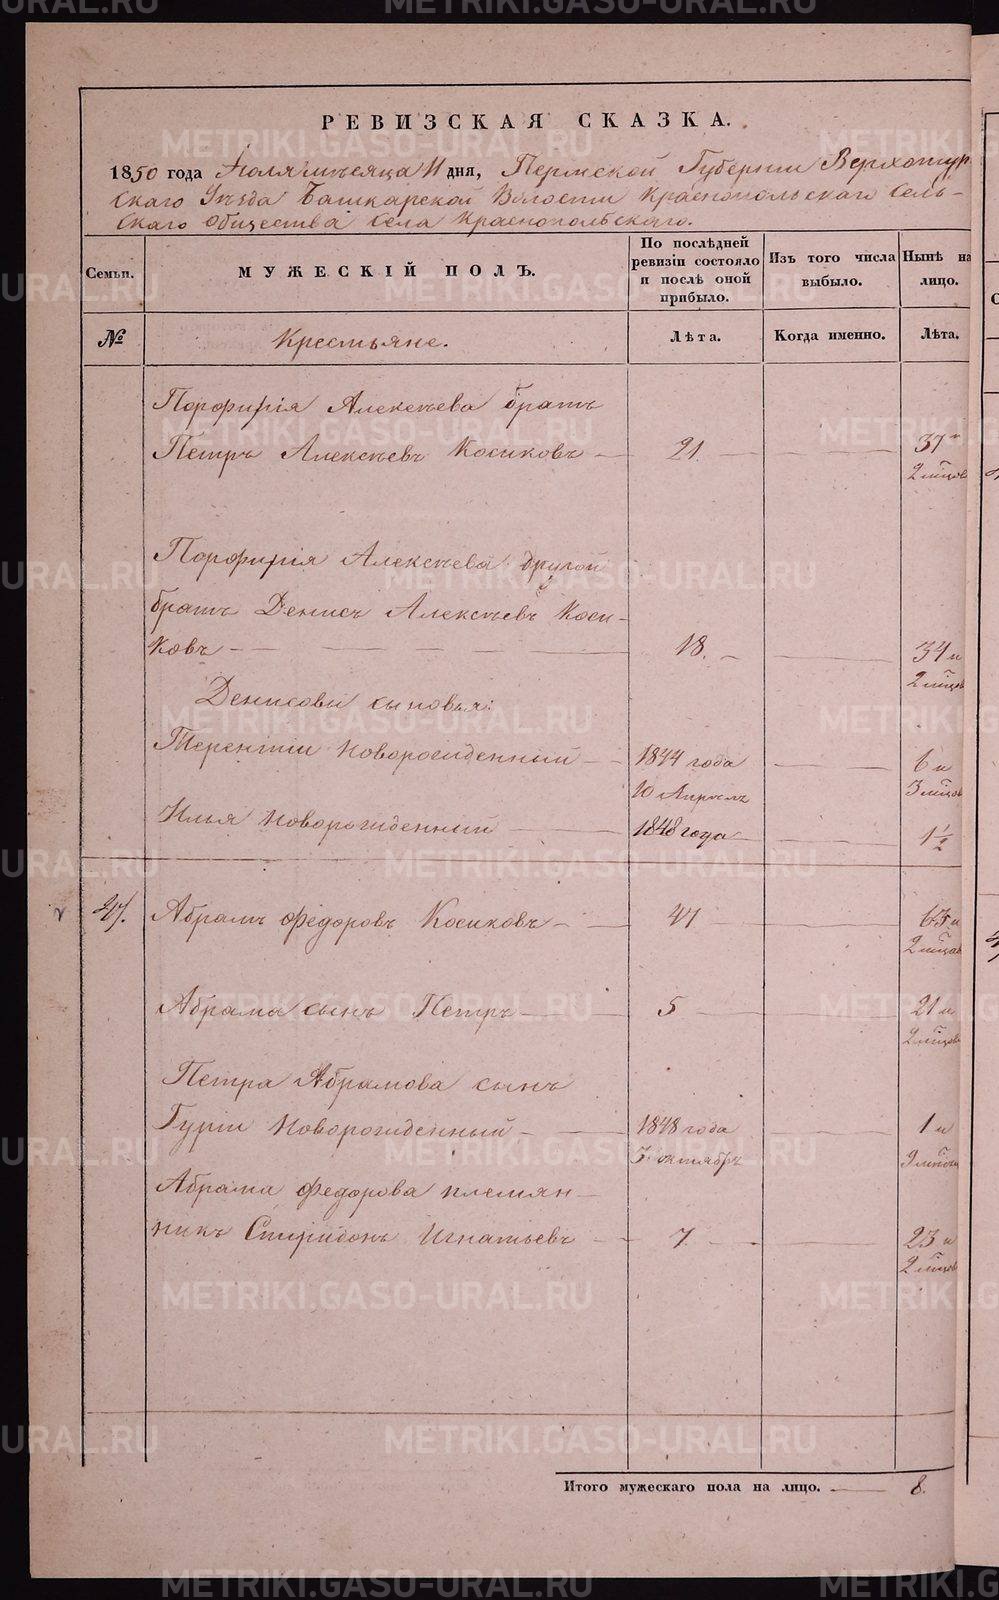 РЕВИЗСКАЯ СКАЗКА.
1850 года Іюля мѣсяца 11 дня, Пермской Губерніи Верхотур
скаго Уѣзда Башкарской Волости Краснопольскаго Сель-
скаго Общества села Краснопольскаго.
Семьи.
МУЖЕСКІЙ ПОЛЪ.
По послѣдней ревизіи состояло и послѣ оной прибыло.
Изъ того числа выбыло.
Нынѣ на лицо.
№
Крестьяне.
Лѣта.
Когда именно.
Лѣта.
Порфирія Алексѣева братъ
Петръ Алексѣевъ Косиковъ — 21 — 37
2 мѣсяц
Порфирія Алексѣева другой
братъ Денисъ Алексѣевъ Коси-
ковъ — 18. — 34 и
2 мѣсяц
Денисовы сыновья:
Терентіи Новорожденный — 1844 года — 6 и
10 Апрѣль 3 мѣсяц
Илья Новорожденный — 1848 года — 1 1/2
47. Абрамъ Федоровъ Косиковъ — 47 — 63 и
2 мѣсяца
Абрама сынъ Петръ — 5 — 21 и
2 мѣсяц
Петра Абрамова сынъ
Гуріи Новорожденный — 1848 года — 1 и
3 октябрь 9 мѣсяц
Абрама Федорова племян-
никъ Спиридонъ Игнатьевъ — 7. — 23 и
2 мѣсяц
Итого мужескаго пола на лицо. — 8.
METRIKI.GASO-URAL.RU